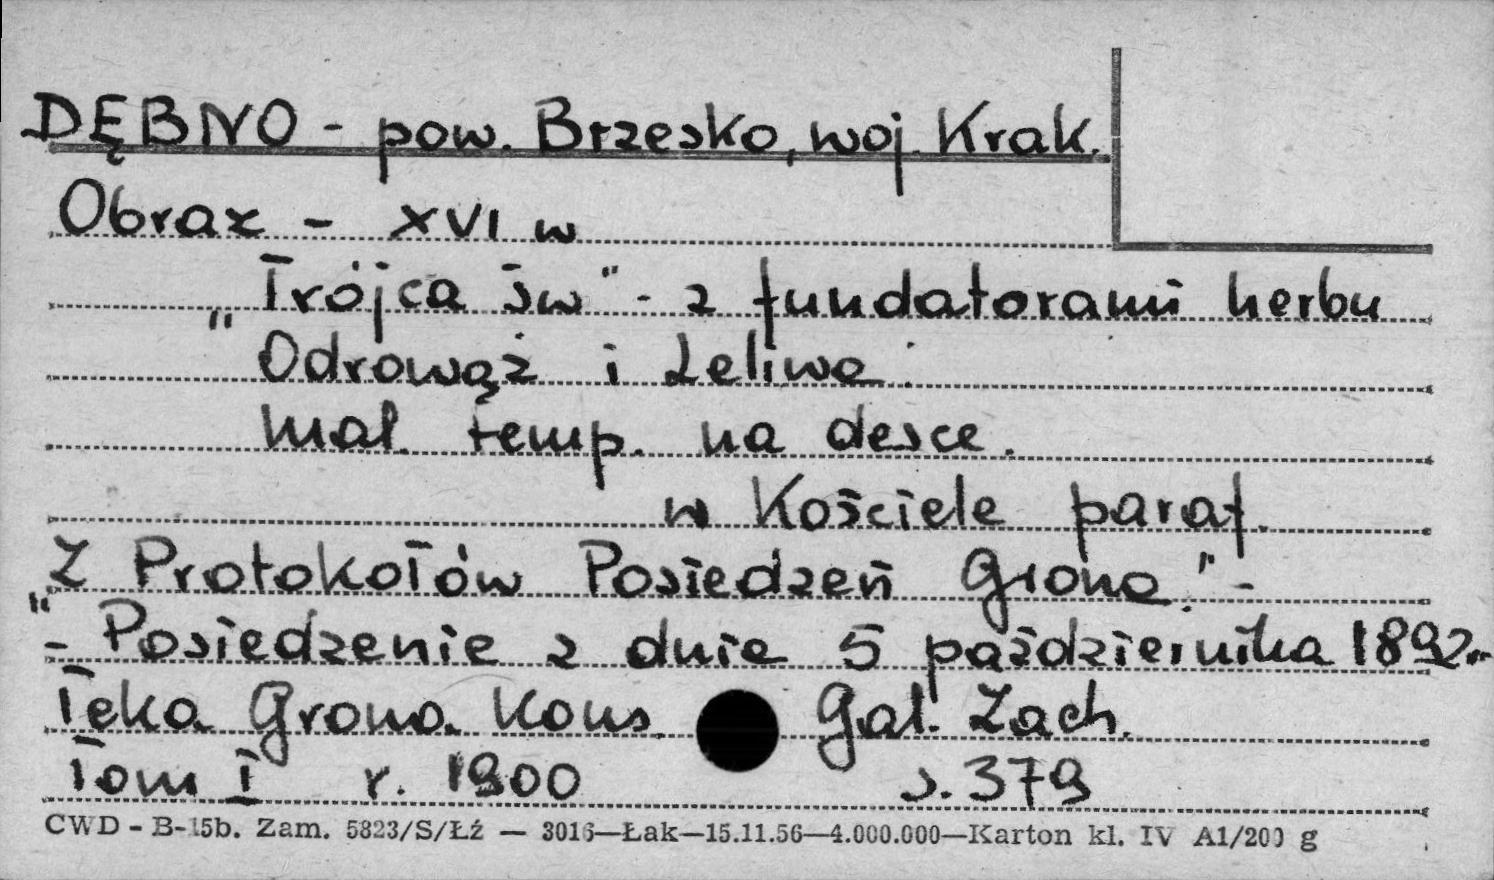 DĘBNO - pow. Brzesko, woj. Krak.
Obraz - XVI w
„Trójca św" - z fundatorami herbu
Odrowąż i Leliwa.
mal. temp. na desce.
w Kościele paraf.
„Z Protokołów Posiedzeń Grona." -
- Posiedzenie z dnia 5 października 1892r.
Teka Grona Kons. Gal. Zach.
Tom I r. 1900 s. 379
CWD - B-15b. Zam. 5823/S/Łź — 3016—Łak—15.11.56—4.000.000—Karton kl. IV A1/200 g